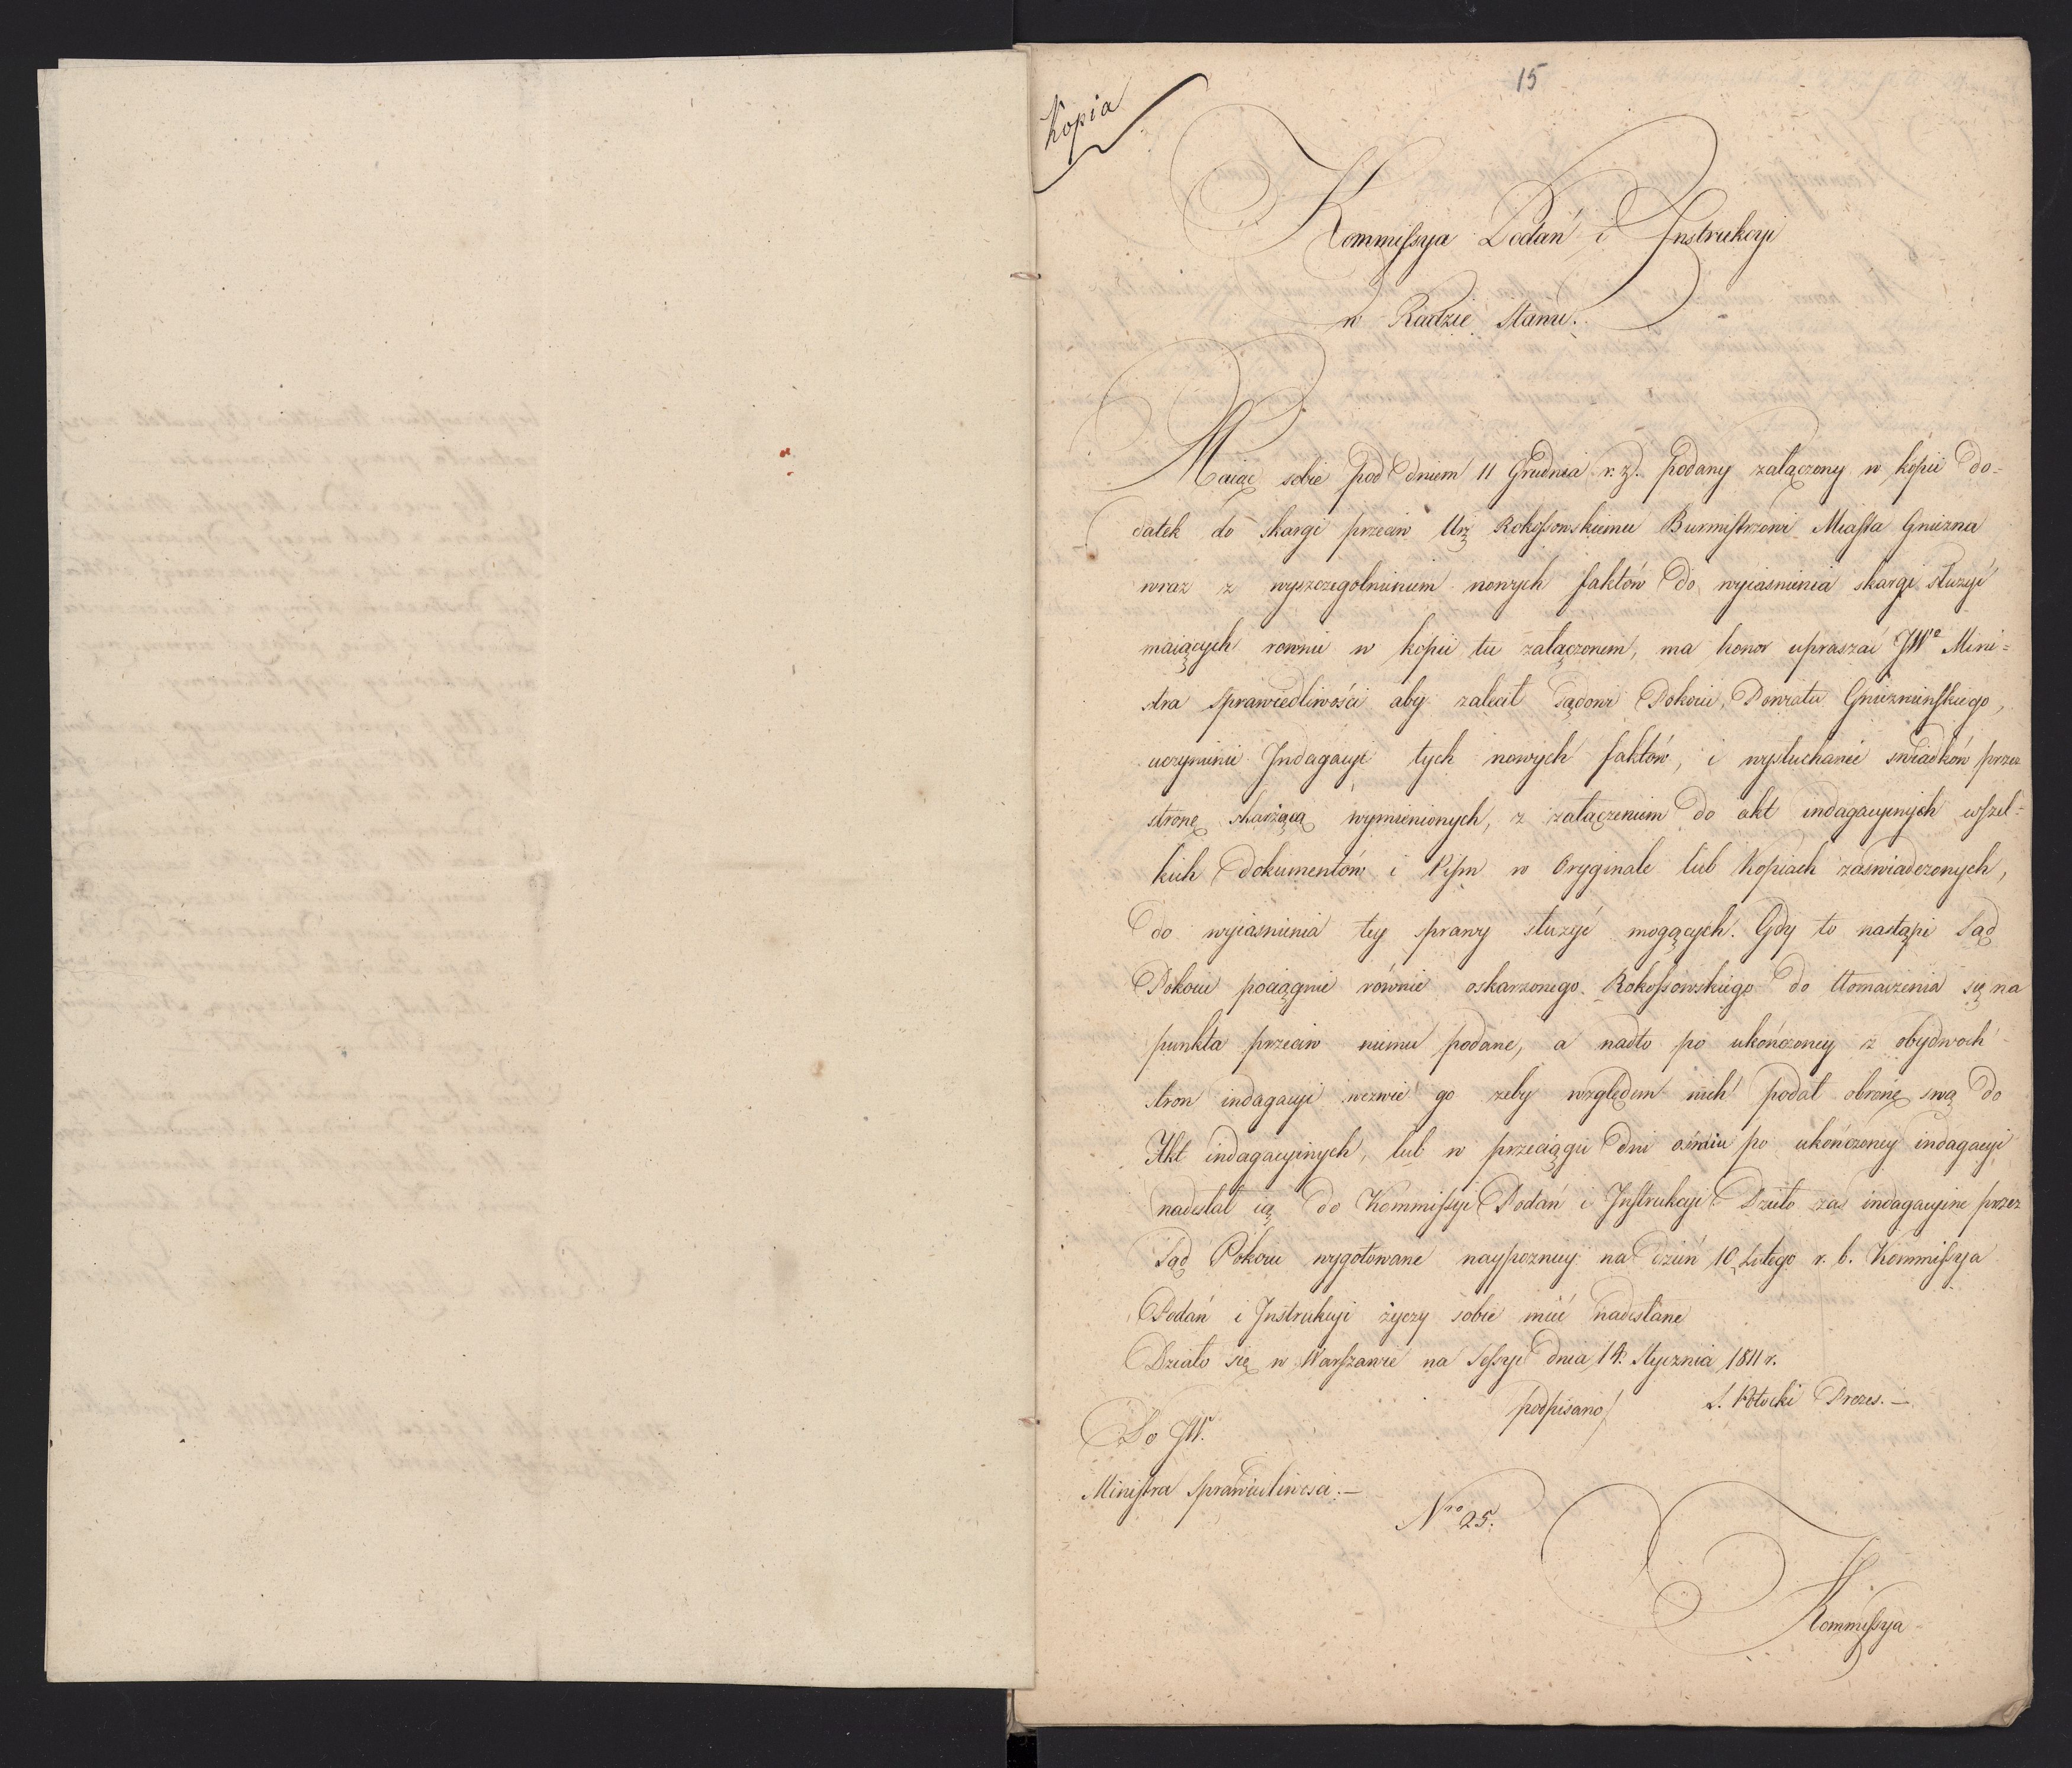 15
Kopia
Kommissya Podań i Instrukcyi
w Radzie Stanu.
Maiąc sobie pod dniem 11 Grudnia r. z. podany załączony w kopii do=
datek do skargi przeciw Urz Rokossowskiemu Burmistrzowi Miasta Gniezna
wraz z wyszczegolnieniem nowych faktów do wyiasnienia skargi słuzyć
maiących rownie w kopii tu załączonem, ma honor upraszać JWo Mini=
stra Sprawiedliwości aby zalecił Sądowi Pokoiu Powiatu Gnieznińskiego,
uczynienie Indagacyi tych nowych faktów, i wysłuchanie swiadków przez
stronę skarżącą wymienionych, z załączeniem do akt indagacyinych wszel=
kich dokumentów i Pism w Oryginale lub Kopiach zaswiadczonych,
do wyiasnienia tey sprawy służyć mogących. Gdy to nastąpi Sąd
Pokoiu pociągnie równie oskarzonego Rokossowskiego do tłomaczenia się na
punkta przeciw niemu podane, a nadto po ukończoney z obydwoch
stron indagacyi wezwie go zeby względem nich podał obronę swą do
Akt indagacyinych, lub w przeciągu dni ośmiu po ukończoney indagacyi
nadesłał ią do Kommissyi Podań i Instrukcyi. Dzieło zaś indagacyine przez
Sąd Pokoiu wygotowane naypozniey na dzień 10 Lutego r. b. Kommissya
Podań i Instrukcyi życzy sobie mieć nadesłane
Działo się w Warszawie na Sessyi dnia 14. Stycznia 1811 r.
podpisano/ S. Potocki Prezes. —
Do JWo
Ministra Sprawiedliwosci. —
Nro 25.
Kommissya